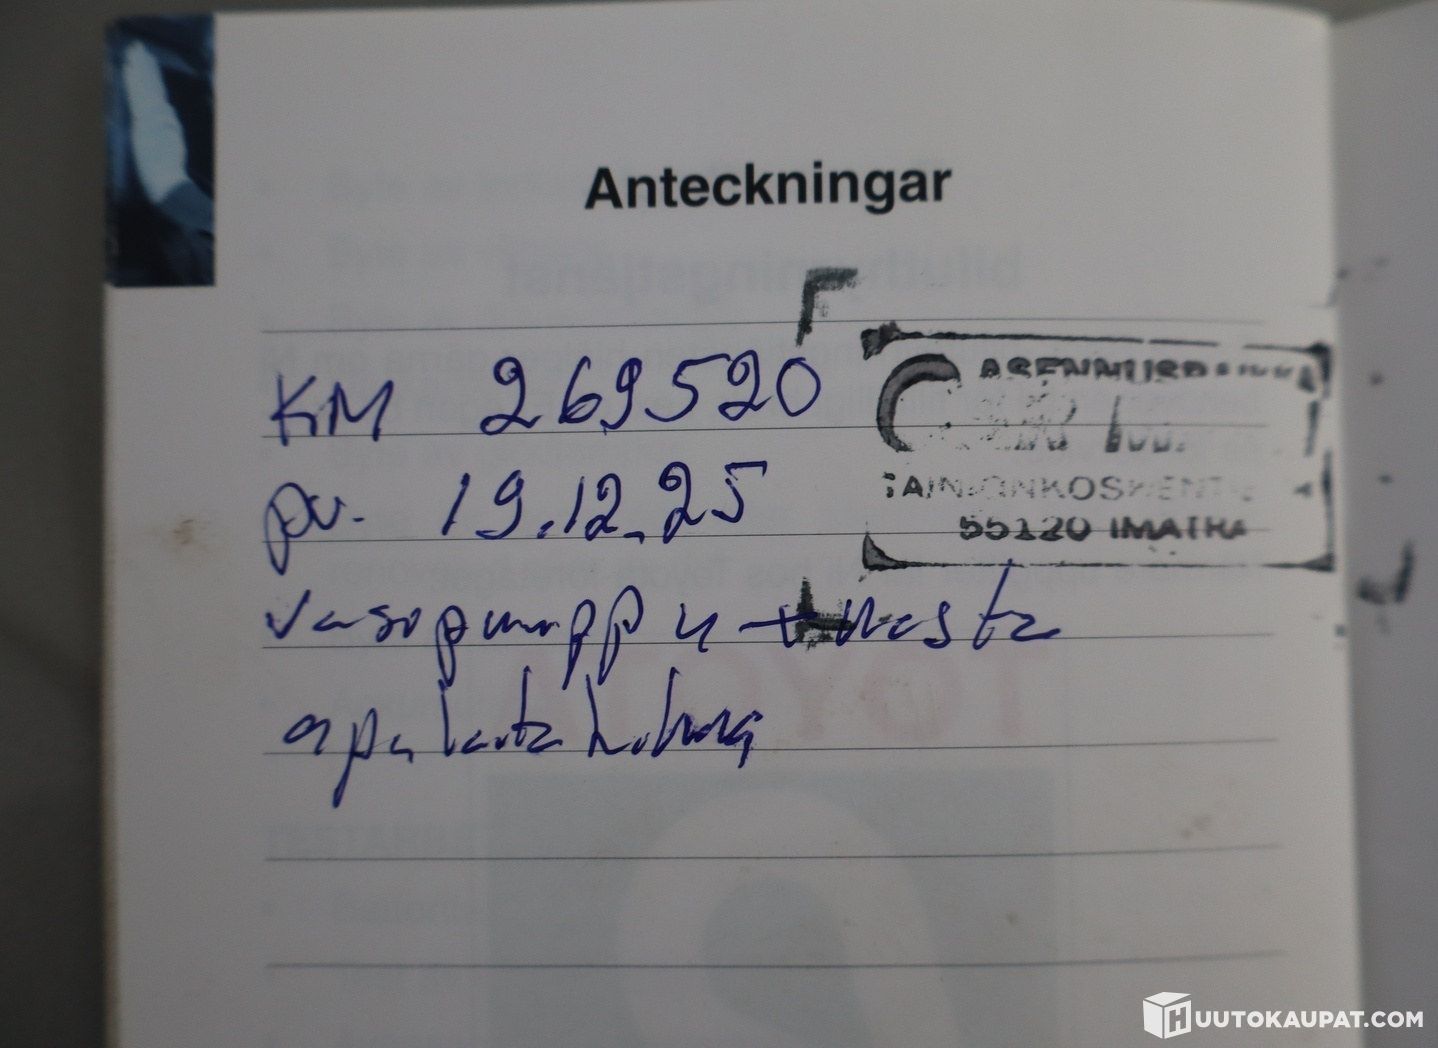 Anteckningar
KM 269520
pv. 19.12.25
vesipumppu + nesta
apulaite hihna
ASENNUSPAIKKA
TAINIONKOSKENTIE
55120 IMATRA
HUUTOKAUPAT.COM